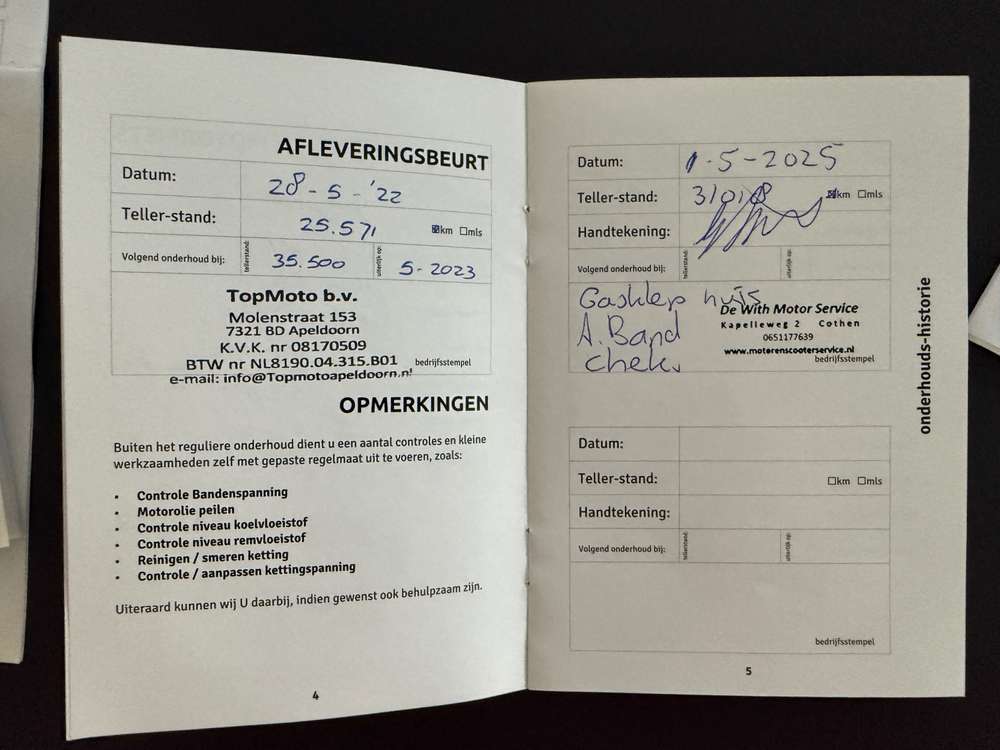 AFLEVERINGSBEURT
Datum: 28-5-'22
Teller-stand: 25.571 km mls
Volgend onderhoud bij: tellerstand: 35.500 uiterlijk op: 5-2023
TopMoto b.v.
Molenstraat 153
7321 BD Apeldoorn
K.V.K. nr 08170509
BTW nr NL8190.04.315.B01
bedrijfsstempel
e-mail: info@Topmotoapeldoorn.nl
OPMERKINGEN
Buiten het reguliere onderhoud dient u een aantal controles en kleine
werkzaamheden zelf met gepaste regelmaat uit te voeren, zoals:
• Controle Bandenspanning
• Motorolie peilen
• Controle niveau koelvloeistof
• Controle niveau remvloeistof
• Reinigen / smeren ketting
• Controle / aanpassen kettingspanning
Uiteraard kunnen wij U daarbij, indien gewenst ook behulpzaam zijn.
4
Datum: 1-5-2025
Teller-stand: 31018 km mls
Handtekening:
Volgend onderhoud bij: tellerstand: uiterlijk op:
Gasklep huis
A. Band
chek.
De With Motor Service
Kapelleweg 2 Cothen
0651177639
www.motorenscooterservice.nl
bedrijfsstempel
Datum:
Teller-stand: km mls
Handtekening:
Volgend onderhoud bij: tellerstand: uiterlijk op:
bedrijfsstempel
5
onderhouds-historie